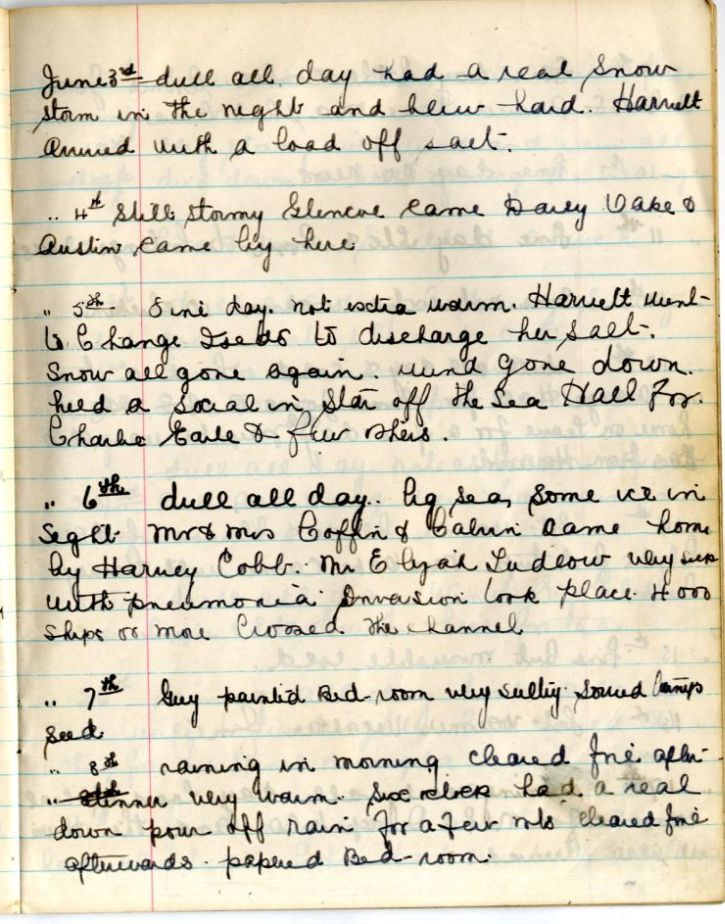 June 3rd dull all day had a real Snow
storm in the night and blew hard. Harnett
Arrived with a load off salt.
" 4th Still Stormy Glencoe came Davey Vake &
Austin came by here
" 5th Fine day. not extra warm. Harnett went
to Change Iseds to discharge her Salt.
Snow all gone again. wind gone down.
held a Social in Star off the Sea Hall for.
Charlie Earle & few others.
" 6th dull all day. big sea, Some ice in
Seght Mr & Mrs Coffin & Calvin Came home
by Harvey Cobb. Mr Elijah Ludlow very sick
with pneumonia Invasion took place. 4 000
Ships or more Crossed the channel
" 7th Guy painted Bed-room very sultry Sowed
Seed
" 8th raining in morning cleared fine after-
" dinner very warm. Six oclock had a real
down pour off rain for a few mts cleared fine
afterwards. papered Bed-room.